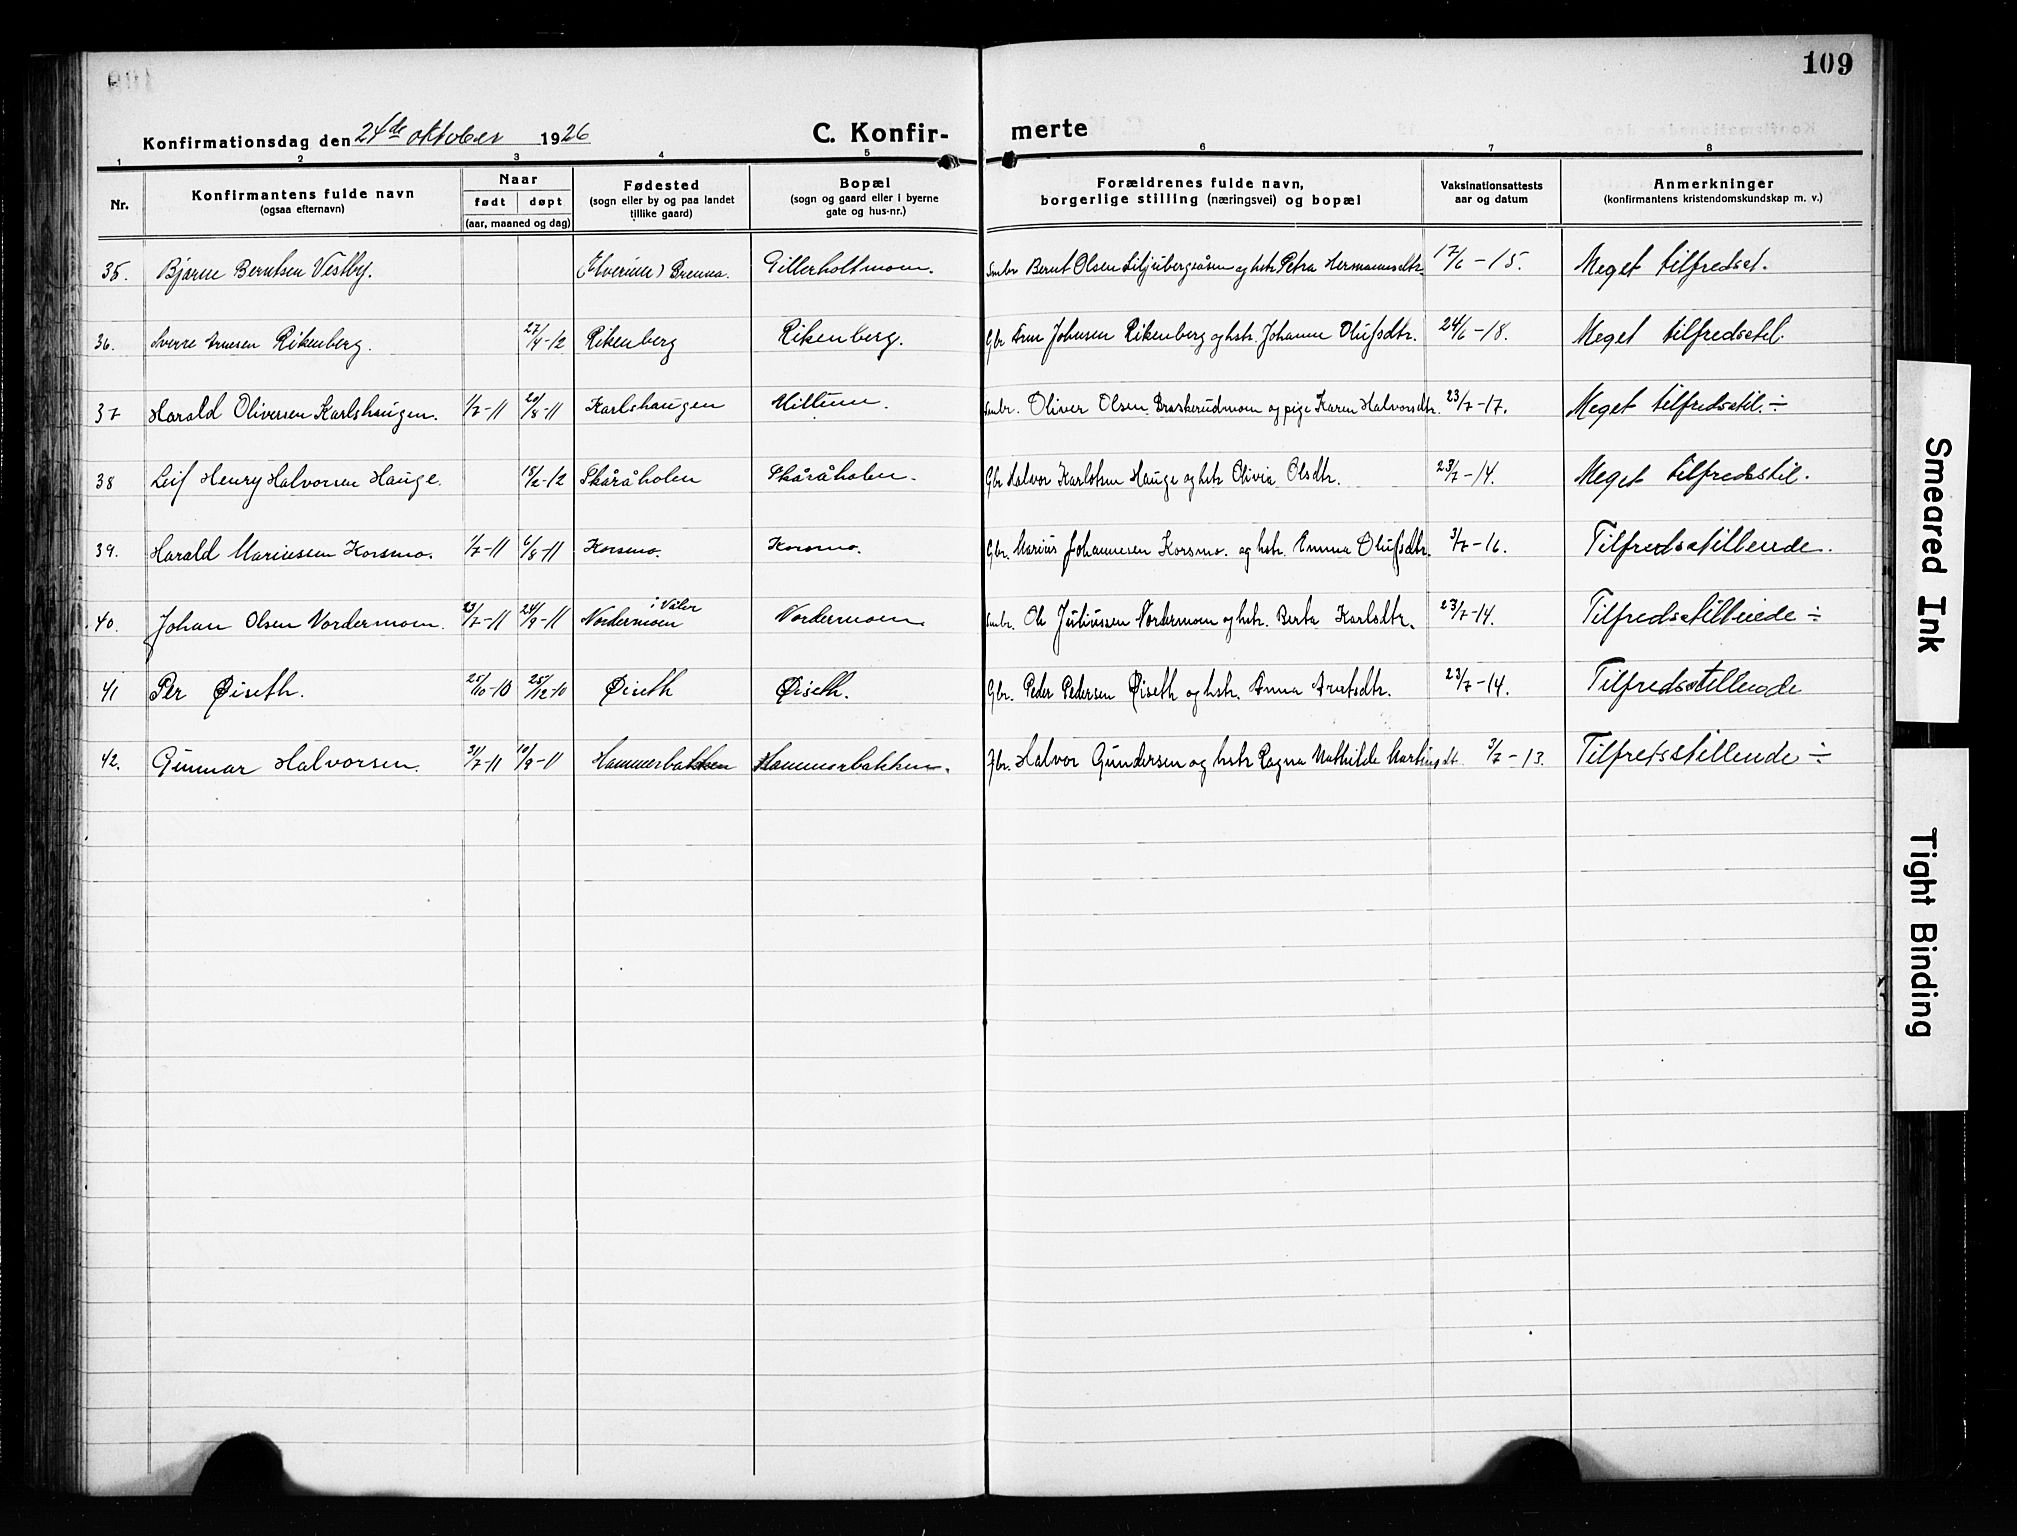 109
Konfirmationsdag den 24de oktober 1926
C. Konfir- merte
1 2 3 4 5 6 7 8
Nr. Konfirmantens fulde navn (ogsaa efternavn) Naar født døpt (aar, maaned og dag) Fødested (sogn eller by og paa landet tillike gaard) Bopæl (sogn og gaard eller i byerne gate og hus-nr.) Forældrenes fulde navn, borgerlige stilling (næringsvei) og bopæl Vaksinationsattests aar og datum Anmerkninger (konfirmantens kristendomskundskap m. v.)
35. Bjarne Berntsen Vestby. (Elverum) Brenna. Gillerholtmoen. Smbr Bernt Olsen Liljubergsåsen og hstr Petra Hermannsdtr. 17/6 - 15. Meget tilfredsst.
36. Sverre Arnesen Rikenberg. 27/4-12 Rikenberg Rikenberg. Gbr Arne Johnsen Rikenberg og hstr. Johanne Olufsdtr. 24/6 - 18. Meget tilfredsstil.
37 Harald Oliversen Karlshaugen. 1/7-11 20/8-11 Karlshaugen Smbr. Oliver Olsen Braskerudmoen og pige Karen Halvorsdtr. 23/7 - 17. Meget tilfredsstil. ÷
38 Leif Henry Halvorsen Hauge. 18/2-12 Skåråholen Skåråholen. Gbr Halvor Karlstsen Hauge og hstr Olivia Olsdtr. 23/7 - 14. Meget tilfredsstil.
39. Harald Mariussen Korsmo. 1/7-11 6/8-11 Korsmo. Korsmo. Gbr. Marius Johannesen Korsmo. og hstr. Emma Olufsdtr. 3/7 - 16. Tilfredsstillende.
40. Johan Olsen Nordermoen. 23/7-11 24/9-11 Nordermoen i Våler Nordermoen Smbr. Ole Juliussen Nordermoen og hstr. Berta Karlsdtr. 23/7-14. Tilfredsstillende ÷
41 Per Øiseth. 25/10-10 25/12-10 Øiseth Øiseth. Gbr. Peder Pedersen Øiseth og hstr. Anna Arntsdtr. 23/7 - 14. Tilfredsstillende
42. Gunnar Halvorsen. 31/7-11 10/9-11 Hammerbakken Hammerbakken. Gbr. Halvor Gundersen og hstr Ragna Mathilde Martinsdt. 3/7 - 13. Tilfredsstillende ÷
Smeared Ink
Tight Binding